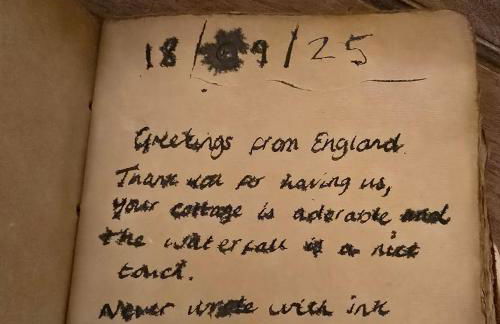 18/09/25
Greetings from England.
Thank you for having us,
your cottage is adorable and
the waterfall is a nice
touch.
Never wrote with ink